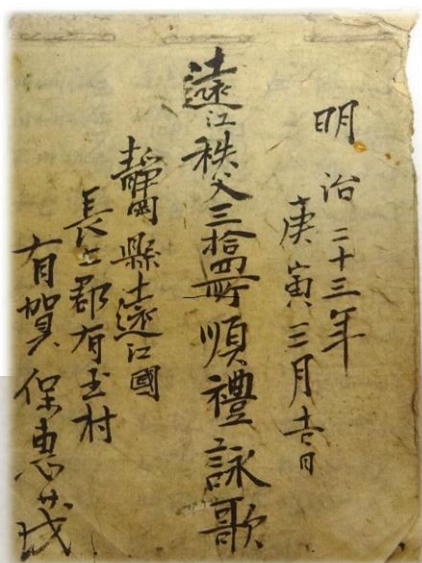 明治二十三年
庚寅三月吉日
遠江秩父三拾四所順禮詠歌
靜岡縣遠江國
長上郡有玉村
有賀保惠茂